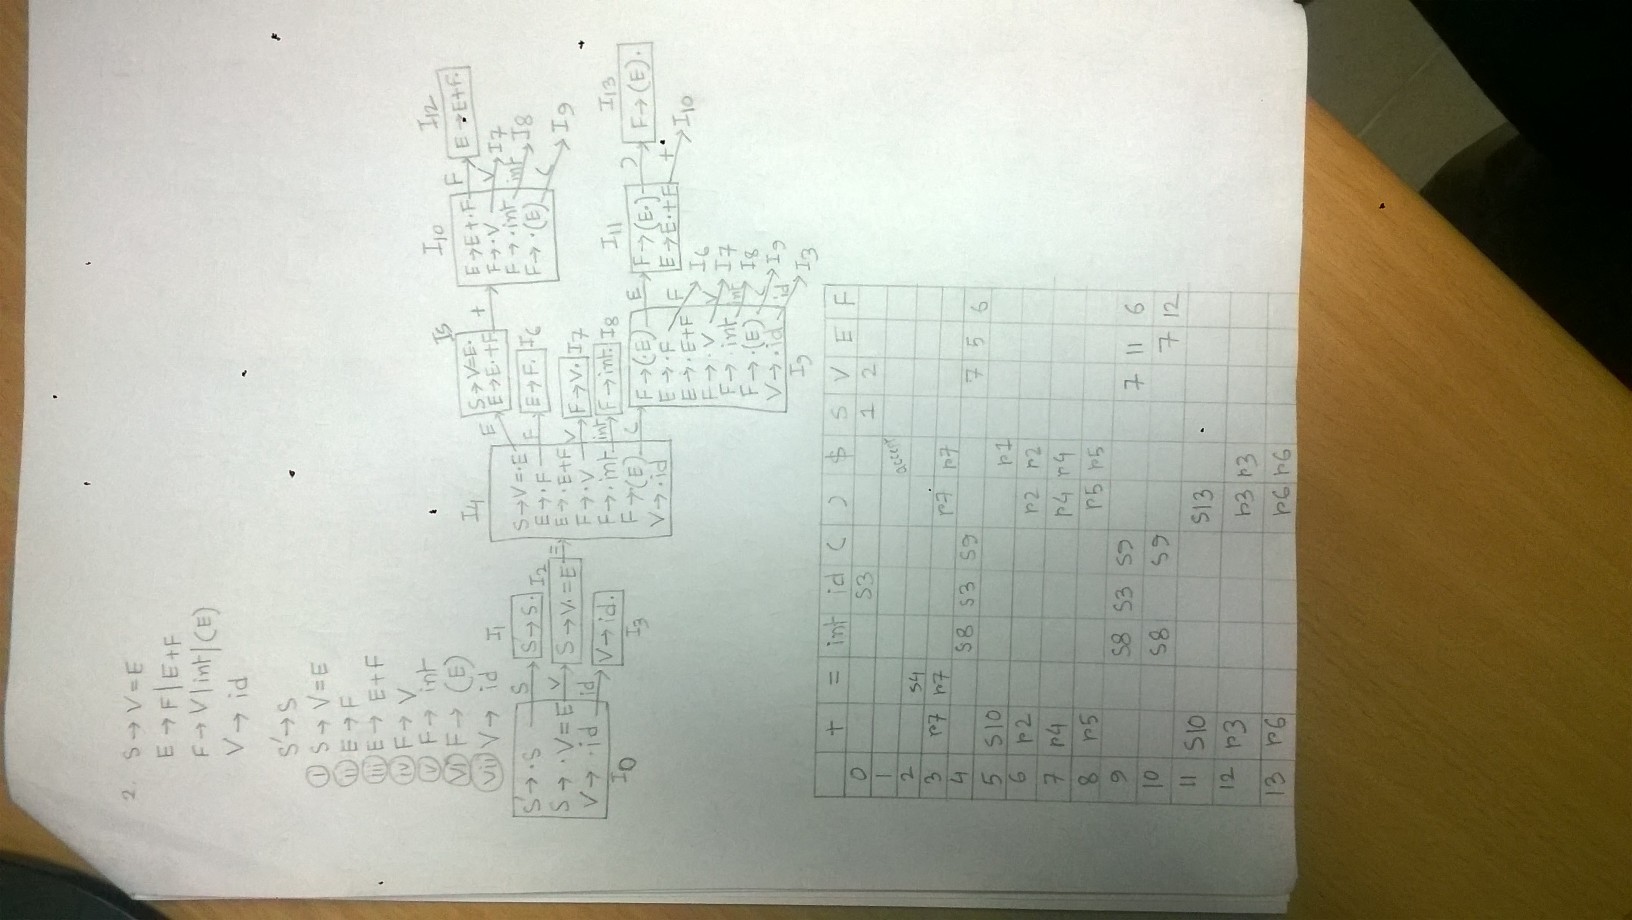 2. S → V = E
E → F | E + F
F → V | int | (E)
V → id
S' → S
i S → V = E
ii E → F
iii E → E + F
iv F → V
v F → int
vi F → (E)
vii V → id
I0
S' → .S
S → .V = E
V → .id
S
V
id
I1
S' → S.
I2
S → V. = E
=
I3
V → id.
I4
S → V = .E
E → .F
E → .E + F
F → .V
F → .int
F → (E)
V → .id
E
F
V
int
(
I5
S → V = E.
E → E. + F
+
I6
E → F.
I7
F → V.
I8
F → int.
I9
F → (.E)
E → .F
E → .E + F
F → .V
F → .int
F → .(E)
V → .id
E
F I6
V I7
int I8
( I9
id I3
I10
E → E + .F
F → .V
F → .int
F → .(E)
F
V I7
int I8
( I9
I11
F → (E.)
E → E. + F
)
+ I10
I12
E → E + F.
I13
F → (E).
+ = int id ( ) $ S V E F
0 S3 1 2
1 accept
2 S4
3 r7 r7 r7 r7
4 S8 S3 S9 7 5 6
5 S10 r1
6 r2 r2 r2
7 r4 r4 r4
8 r5 r5 r5
9 S8 S3 S9 7 11 6
10 S8 S9 7 12
11 S10 S13
12 r3 r3 r3
13 r6 r6 r6